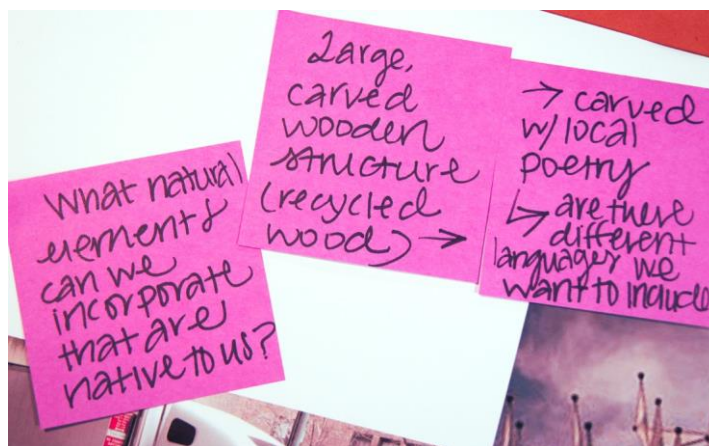 What natural
elements
can we
incorporate
that are
native to us?
Large,
carved
wooden
structure
(recycled
wood) →
→ carved
w/ local
poetry
↳ are there
different
languages we
want to include